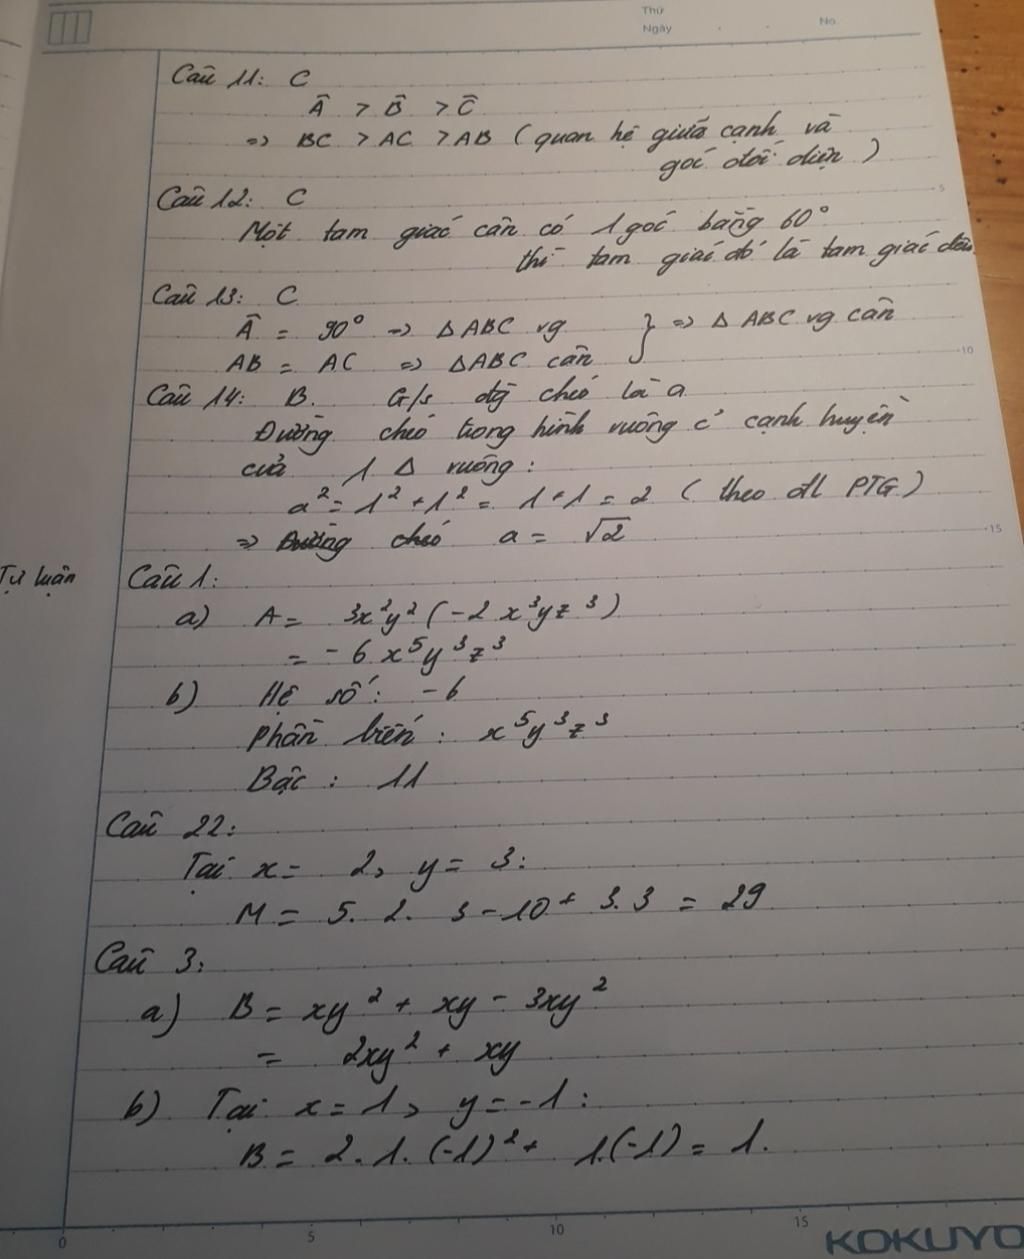 Thứ
Ngày . . No.
Câu 11: C
Â > B̂ > Ĉ
=> BC > AC > AB ( quan hệ giữa cạnh và
góc đối diện )
5
Câu 12: C
Một tam giác cân có 1 góc bằng 60°
thì tam giác đó là tam giác đều
Câu 13: C
Â = 90° => Δ ABC vg } => Δ ABC vg cân
AB = AC => ΔABC cân
10
Câu 14: B. G/s đg chéo là a
Đường chéo trong hình vuông c' cạnh huyền
của 1 Δ vuông :
a² = 1² + 1² = 1 + 1 = 2 ( theo đl PTG )
=> Đường chéo a = √2
15
Tự luận Câu 1:
a) A = 3x²y² ( -2 x³yz³ )
= - 6 x⁵y³z³
b) Hệ số : - 6
Phần biến : x⁵y³z³
Bậc : 11
Câu 22:
Tại x = 2, y = 3 :
M = 5. 2. 3 - 10 + 3. 3 = 29
Câu 3:
a) B = xy² + xy - 3xy²
= 2xy² + xy
b) Tại x = 1, y = -1 :
B = 2. 1. (-1)² + 1.(-1) = 1.
0 5 10 15 KOKUYO